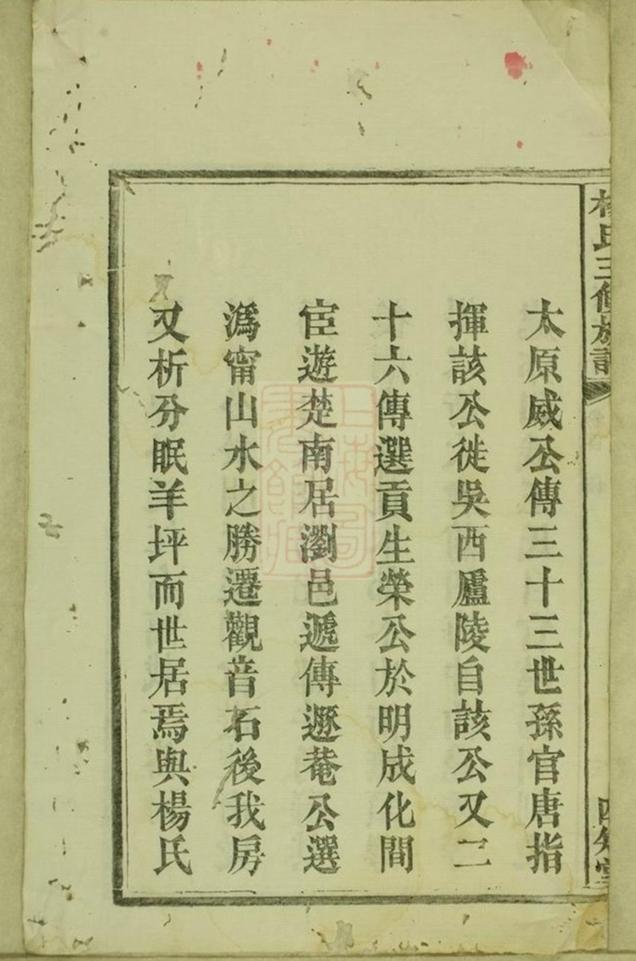 楊氏三修族譜
四知堂
太原威公傳三十三世孫官唐指
揮該公徙吳西廬陵自該公又二
十六傳選貢生榮公於明成化間
宦遊楚南居瀏邑遞傳遯菴公選
溈甯山水之勝遷觀音石後我房
又析分眠羊坪而世居焉與楊氏